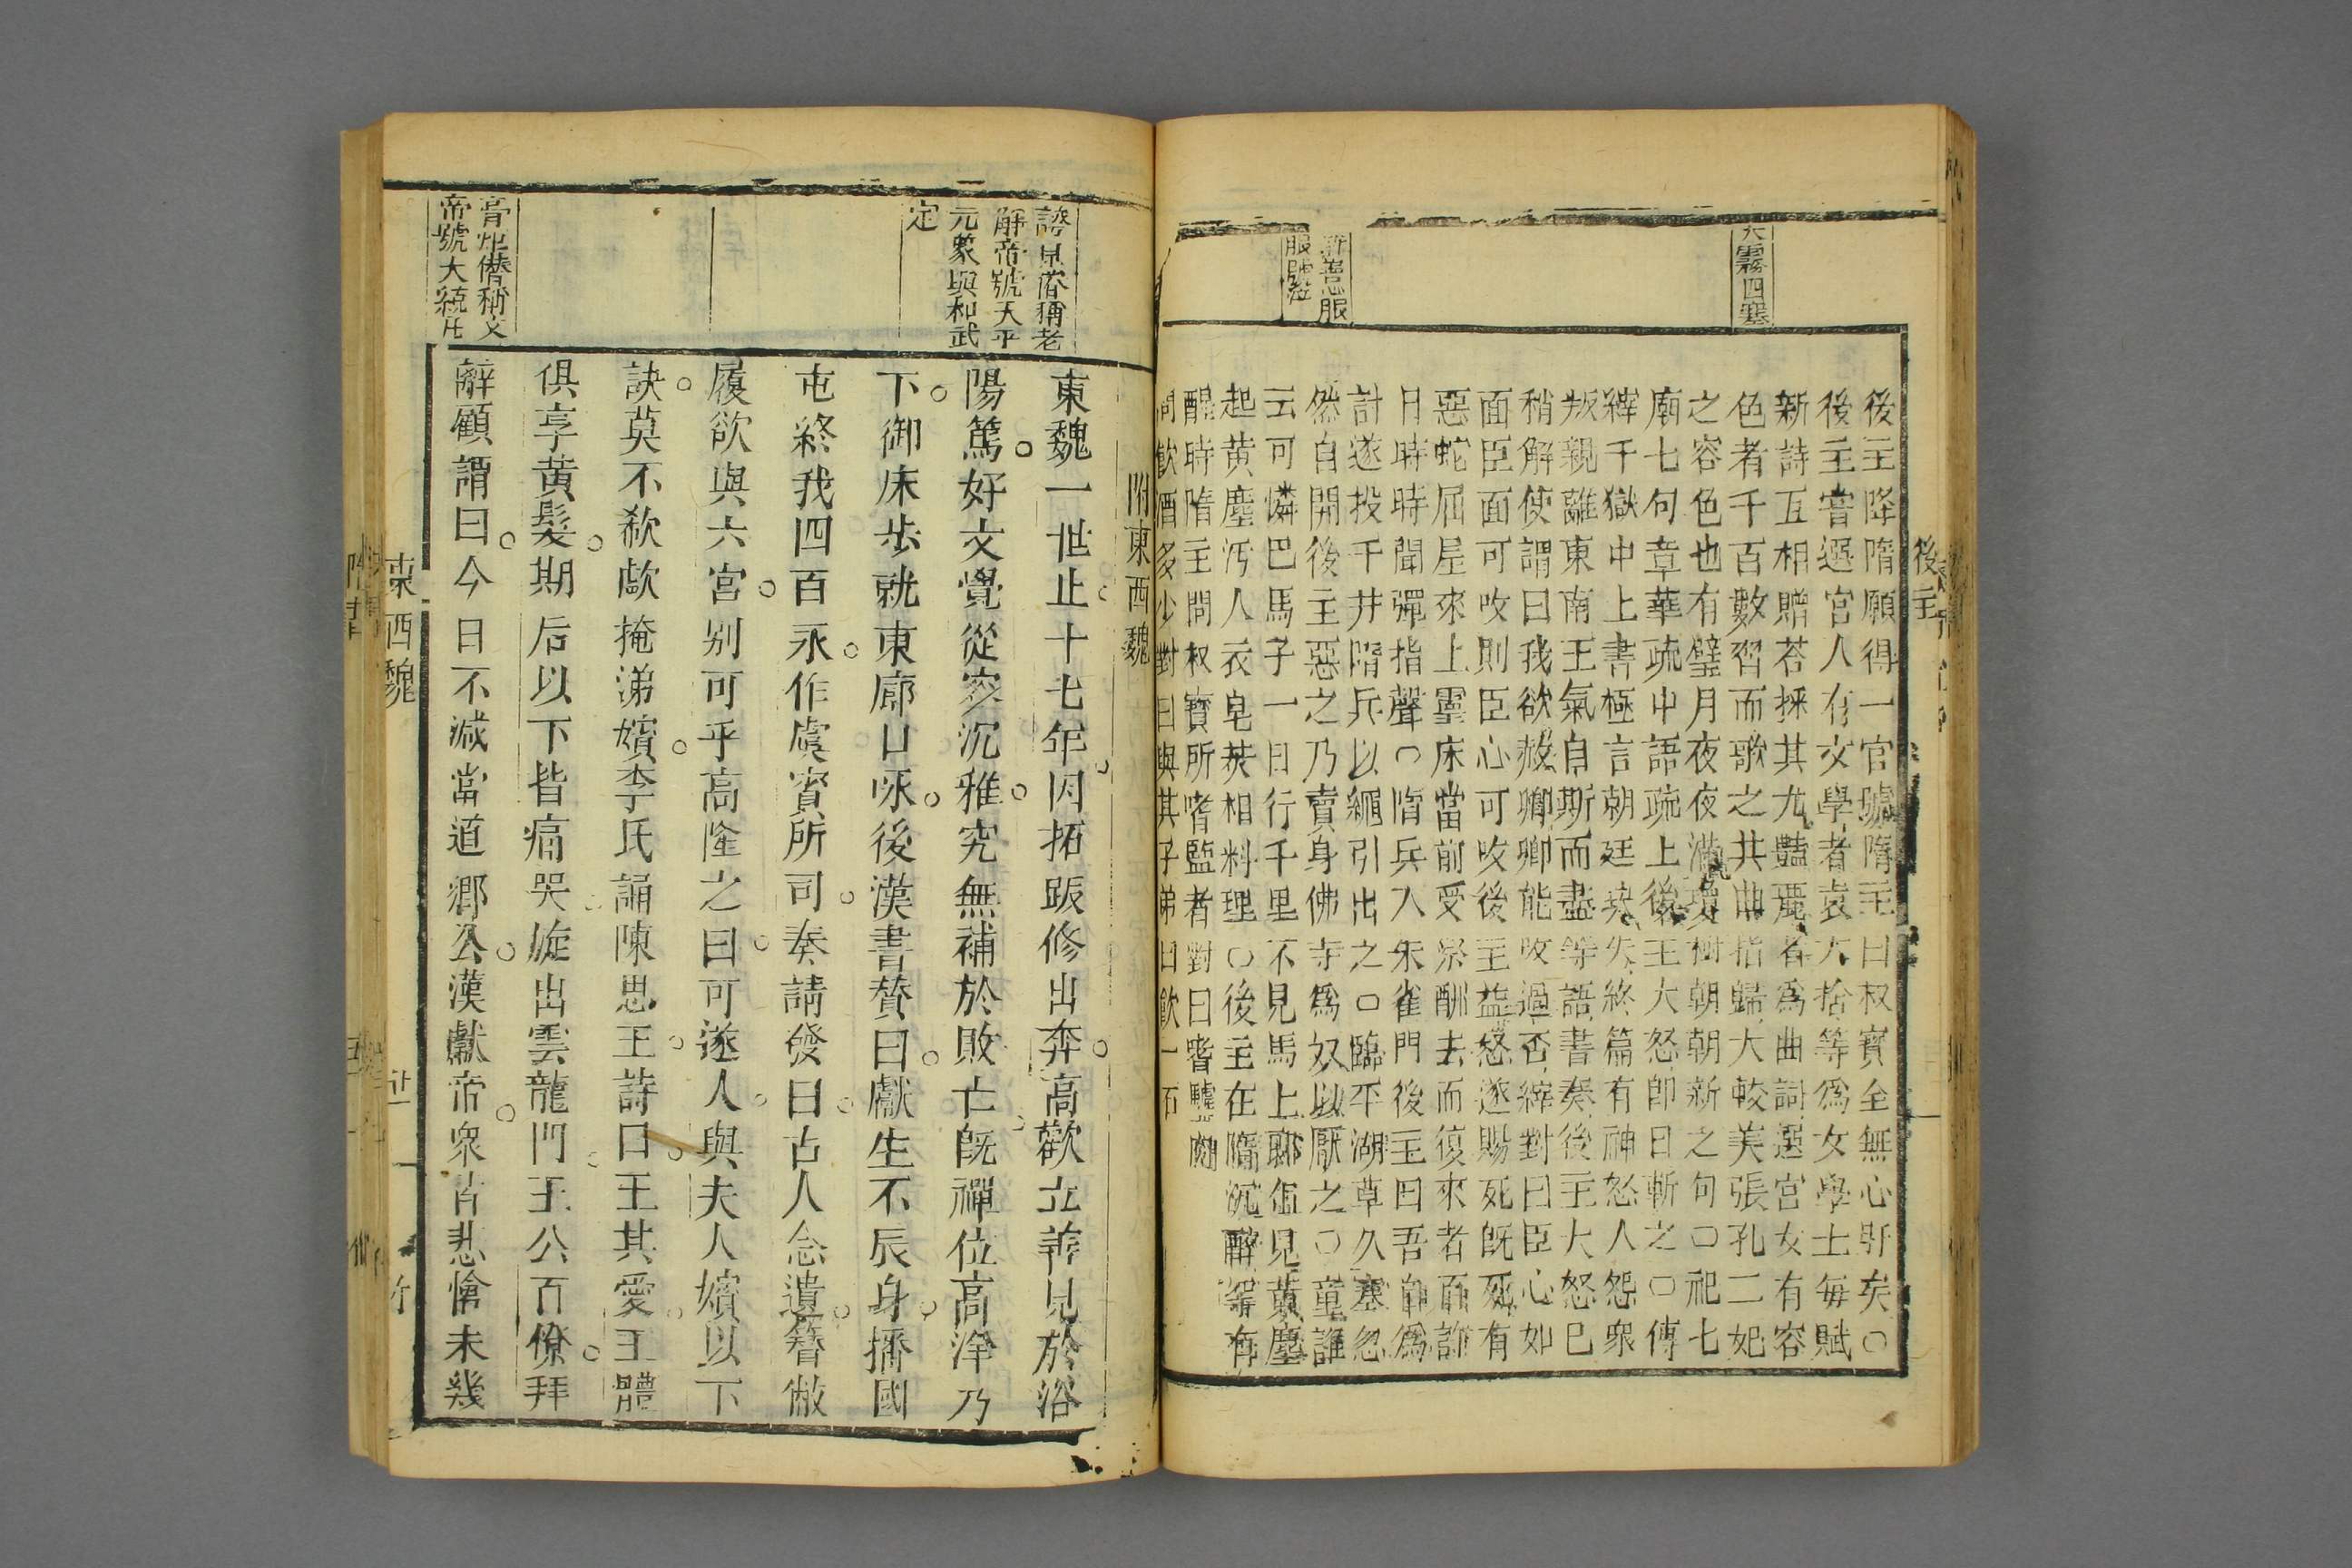 大霧四塞
後主降隋願得一官號隋主曰叔寶全無心肝矣○
後主嘗選宮人有文學者袁大捨等爲女學士每賦
新詩互相贈荅採其尤豔麗者爲曲詞選宮女有容
色者千百數習而歌之其曲指歸大較美張孔二妃
之容色也有璧月夜夜滿瓊樹朝朝新之句○祀七
廟七句章華疏中語疏上後主大怒即日斬之○傅
縡千獄中上書極言朝廷失終篇有神怒人怨衆
叛親離東南王氣自斯而盡等語書奏後主大怒已
稍解使謂曰我欲赦卿卿能改過否縡對曰臣心如
面臣面可改則臣心可改後主益怒遂賜死既死有
惡蛇屈尾來上靈床當前受祭酬去而復來者百許
日時時聞彈指聲○隋兵入朱雀門後主曰吾自爲
計遂投千井隋兵以繩引出之○臨平湖草久塞忽
然自開後主惡之乃賣身佛寺爲奴以厭之○童謠
云可憐巴馬子一日行千里不見馬上郎但見黃塵
起黄塵汚人衣皂莢相料理○後主在隋沉醉罕有
醒時隋主問叔寶所嗜監者對曰嗜驢肉
問飲酒多少對曰與其子弟日飲一石
後主
附東西魏
東魏一世止十七年因拓跋修出奔高歡立善見於洛
陽篤好文覺從容沉雅究無補於敗亡既禪位高洋乃
下御床步就東廊口咏後漢書贊曰獻生不辰身播國
屯終我四百永作虞賓所司奏請發曰古人念遺簪傲
履欲與六宮别可乎高隆之曰可遂人與夫人嬪以下
訣莫不欷歔掩涕嬪李氏誦陳思王詩曰王其愛王體
俱享黄髮期后以下皆痛哭旋出雲龍門王公百僚拜
辭顧謂曰今日不減當道鄉公漢獻帝衆皆悲愴未幾
諡見脩稱老
解帝號天平
元象與和武
定
帝號大統在
東西魏